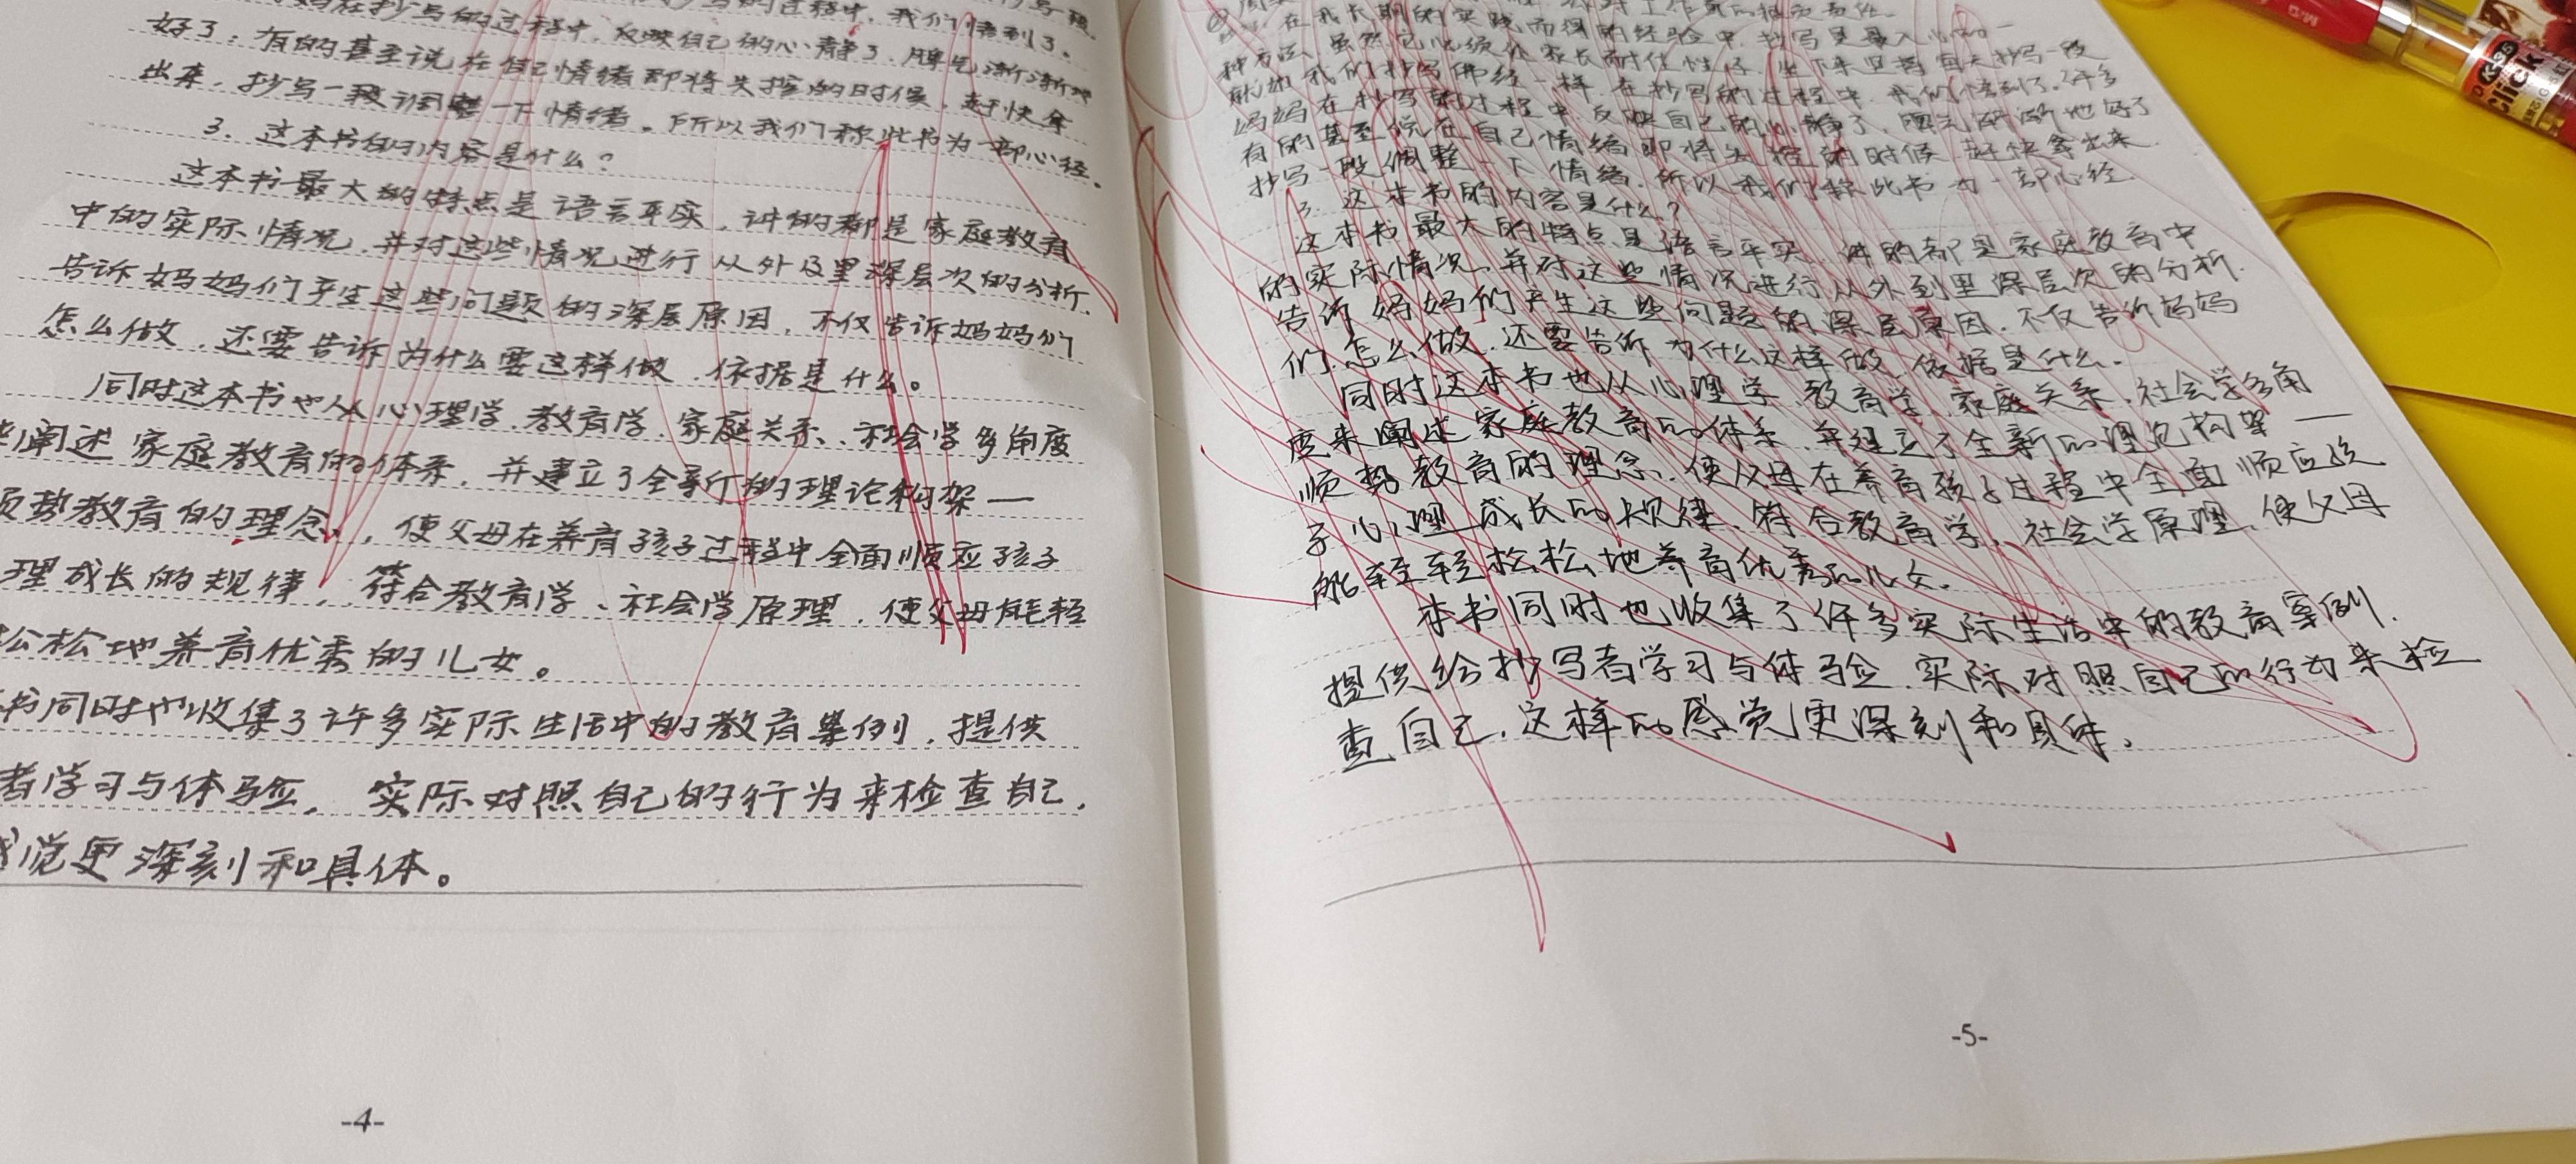 妈在抄写的过程中，反映自己的心静了，脾气渐渐地
好了；有的甚至说在自己情绪即将失控的时候，赶快拿
出来，抄写一段调整一下情绪。所以我们称此书为一部心经。
3. 这本书的内容是什么？
这本书最大的特点是语言平实，讲的都是家庭教育
中的实际情况，并对这些情况进行从外及里深层次的分析．
告诉妈妈们产生这些问题的深层原因，不仅告诉妈妈们
怎么做，还要告诉为什么要这样做，依据是什么。
同时这本书也从心理学、教育学、家庭关系、社会学多角度
阐述家庭教育的体系，并建立了全新的理论构架—
势教育的理念，使父母在养育孩子过程中全面顺应孩子
理成长的规律，符合教育学、社会学原理，使父母能轻
松松地养育优秀的儿女。
书同时也收集了许多实际生活中的教育案例，提供
者学习与体验，实际对照自己的行为来检查自己，
觉更深刻和具体。
-4-
种方法，虽然它必须让家长耐住性子，坐下来
就如我们抄写佛经一样，在抄写的过程中，我们悟到了，许多
妈妈在抄写的过程中，反映自己的心静了，脾气渐渐地好了
有的甚至说在自己情绪即将失控的时候，赶快拿出来
抄写一段调整一下情绪，所以我们称此书为一部心经．
3 这本书的内容是什么？
这本书最大的特点是语言平实，讲的都是家庭教育中
的实际情况，并对这些情况进行从外到里深层次的分析．
告诉妈妈们产生这些问题的深层原因，不仅告诉妈妈
们怎么做，还要告诉为什么这样做，依据是什么．
同时这本书也从心理学、教育学、家庭关系、社会学多角
度来阐述家庭教育的体系，并建立了全新的理论构架——
顺势教育的理念，使父母在养育孩子过程中全面顺应孩
子心理成长的规律，符合教育学、社会学原理，使父母
能轻轻松松地养育优秀的儿女．
本书同时也收集了许多实际生活中的教育案例．
提供给抄写者学习与体验，实际对照自己的行为来检
查自己，这样的感觉更深刻和具体．
-5-
Click